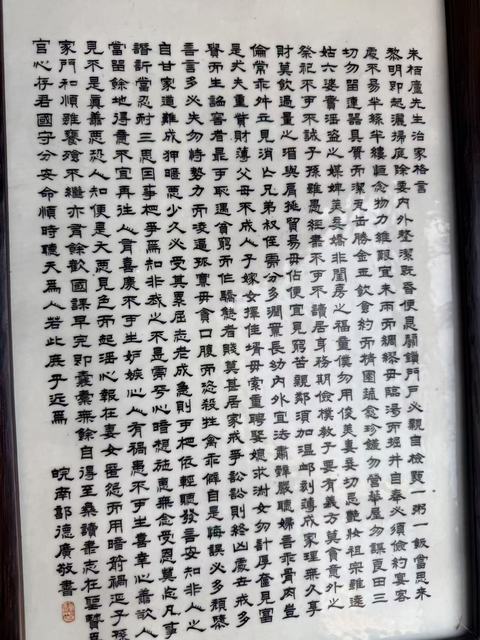 朱柏廬先生治家格言
黎明即起灑掃庭除要內外整潔既昏便息關鎖門戶必親自檢點一粥一飯當思來
處不易半絲半縷恆念物力維艱宜未雨而綢繆毋臨渴而掘井自奉必須儉約宴客
切勿留連器具質而潔瓦缶勝金玉飲食約而精園蔬愈珍饈勿營華屋勿謀良田三
姑六婆實淫盜之媒婢美妾嬌非閨房之福童僕勿用俊美妻妾切忌艷妝祖宗雖遠
祭祀不可不誠子孫雖愚經書不可不讀居身務期儉樸教子要有義方莫貪意外之
財莫飲過量之酒與肩挑貿易毋佔便宜見窮苦親鄰須加溫卹刻薄成家理無久享
倫常乖舛立見消亡兄弟叔侄需分多潤寡長幼內外宜法肅辭嚴聽婦言乖骨肉豈
是丈夫重貲財薄父母不成人子嫁女擇佳壻毋索重聘娶媳求淑女勿計厚奩見富
貴而生諂容者最可恥遇貧窮而作驕態者賤莫甚居家戒爭訟訟則終凶處世戒多
言言多必失勿恃勢力而凌逼孤寡毋貪口腹而恣殺牲禽乖僻自是悔誤必多頹隳
自甘家道難成狎暱惡少久必受其累屈志老成急則可相依輕聽發言安知非人之
譖訴當忍耐三思因事相爭焉知非我之不是需平心暗想施惠無念受恩莫忘凡事
當留餘地得意不宜再往人有喜慶不可生妒嫉心人有禍患不可生喜幸心善欲人
見不是真善惡恐人知便是大惡見色而起淫心報在妻女匿怨而用暗箭禍延子孫
家門和順雖饔飧不繼亦有餘歡國課早完即囊橐無餘自得至樂讀書志在聖賢為
官心存君國守分安命順時聽天為人若此庶乎近焉 皖南郭德廣敬書